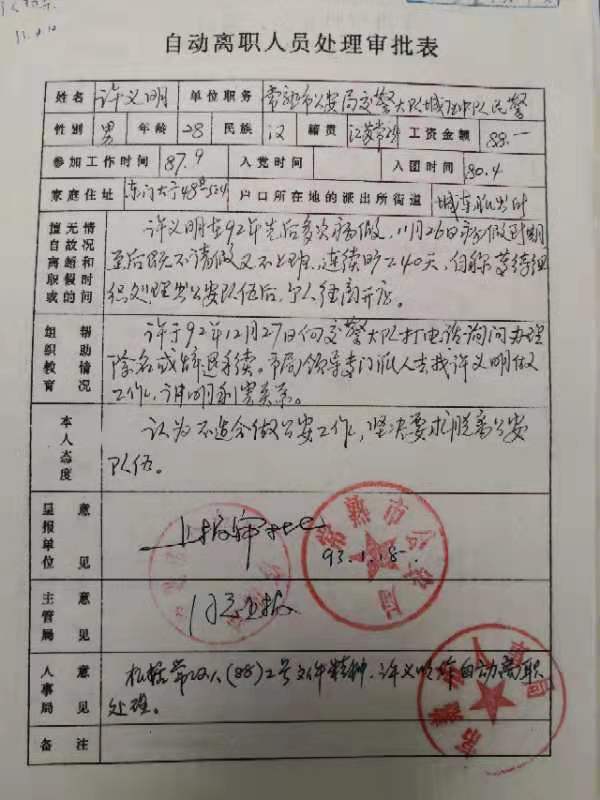 自动离职人员处理审批表
姓名 许义明 单位职务 常熟市公安局交警大队城区中队民警
性别 男 年龄 28 民族 汉 籍贯 江苏常熟 工资金额 88.—
参加工作时间 87.9 入党时间 入团时间 80.4
家庭住址 户口所在地的派出所街道 城东派出所
擅自离职或无故超假的情况和时间
许义明在92年先后多次病假,11月26日病假到期
至后既不请假又不上班,连续旷工40天,自称等待组
织处理出公安队伍后,个人经商开店。
组织教育帮助情况
许于92年12月27日向交警大队打电话询问办理
除名或辞退手续。市局领导专门派人去找许义明做
工作,讲明利害关系。
本人态度
认为不适合做公安工作,坚决要求脱离公安
队伍。
呈报单位意见
上报审批
常熟市公安局
93.1.18.
主管局意见
同意上报
人事局意见
根据常政人(88)2号文件精神,许义明作自动离职
处理。
常熟市人事局
备注